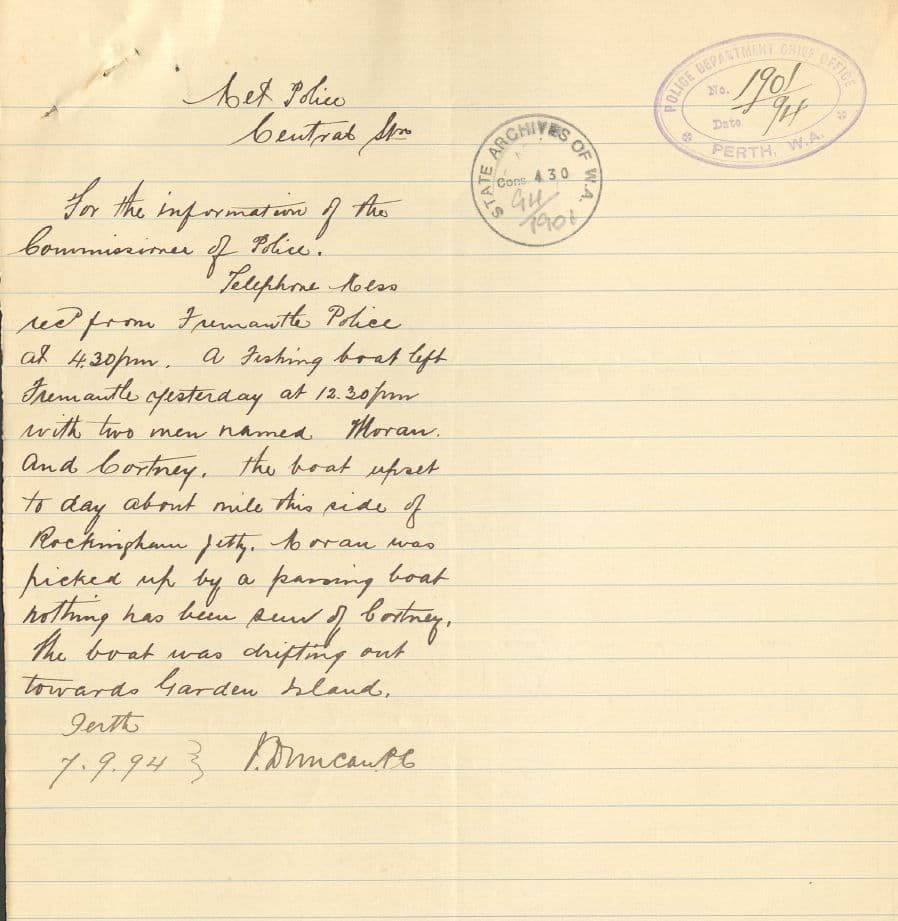 Met Police
Central Stn
POLICE DEPARTMENT CHIEF OFFICE
No. 1901/94
Date
PERTH, W.A.
STATE ARCHIVES OF W.A.
Cons 430
94/1901
For the information of the
Commissioner of Police.
Telephone Mess
recd from Fremantle Police
at 4.30pm. A Fishing boat left
Fremantle yesterday at 12.30pm
with two men named Moran.
And Cortney. the boat upset
to day about mile this side of
Rockingham Jetty. Moran was
picked up by a passing boat
nothing has been seen of Cortney.
The boat was drifting out
towards Garden Island.
Perth
7.9.94
J. Duncan P.C